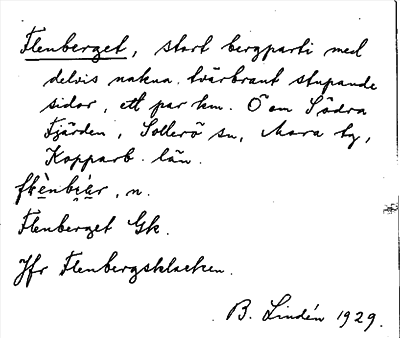 Flenberget, stort bergparti med
delvis nakna tvärbrant stupande
sidor, ett par km. Ö om Södra
Fjärden, Sollerö sn, Mora tg,
Kopparb. län.
flènbi̯är, n.
Flenberget Gk.
Jfr Flenbergsklacken.
B. Lindén 1929.